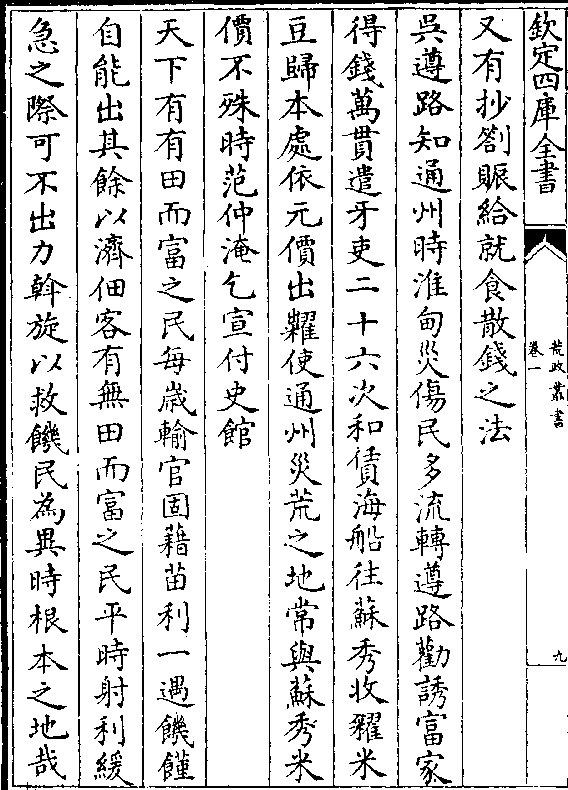 欽定四庫全書
荒政叢書
卷一
九
又有抄劄賑給就食散錢之法
吳遵路知通州時淮甸災傷民多流轉遵路勸誘富家
得錢萬貫遣牙吏二十六次和賃海船往蘇秀收糴米
豆歸本處依元價出糶使通州災荒之地常與蘇秀米
價不殊時范仲淹乞宣付史館
天下有有田而富之民每歲輸官固藉苗利一遇饑饉
自能出其餘以濟佃客有無田而富之民平時射利緩
急之際可不出力斡旋以救饑民為異時根本之地哉